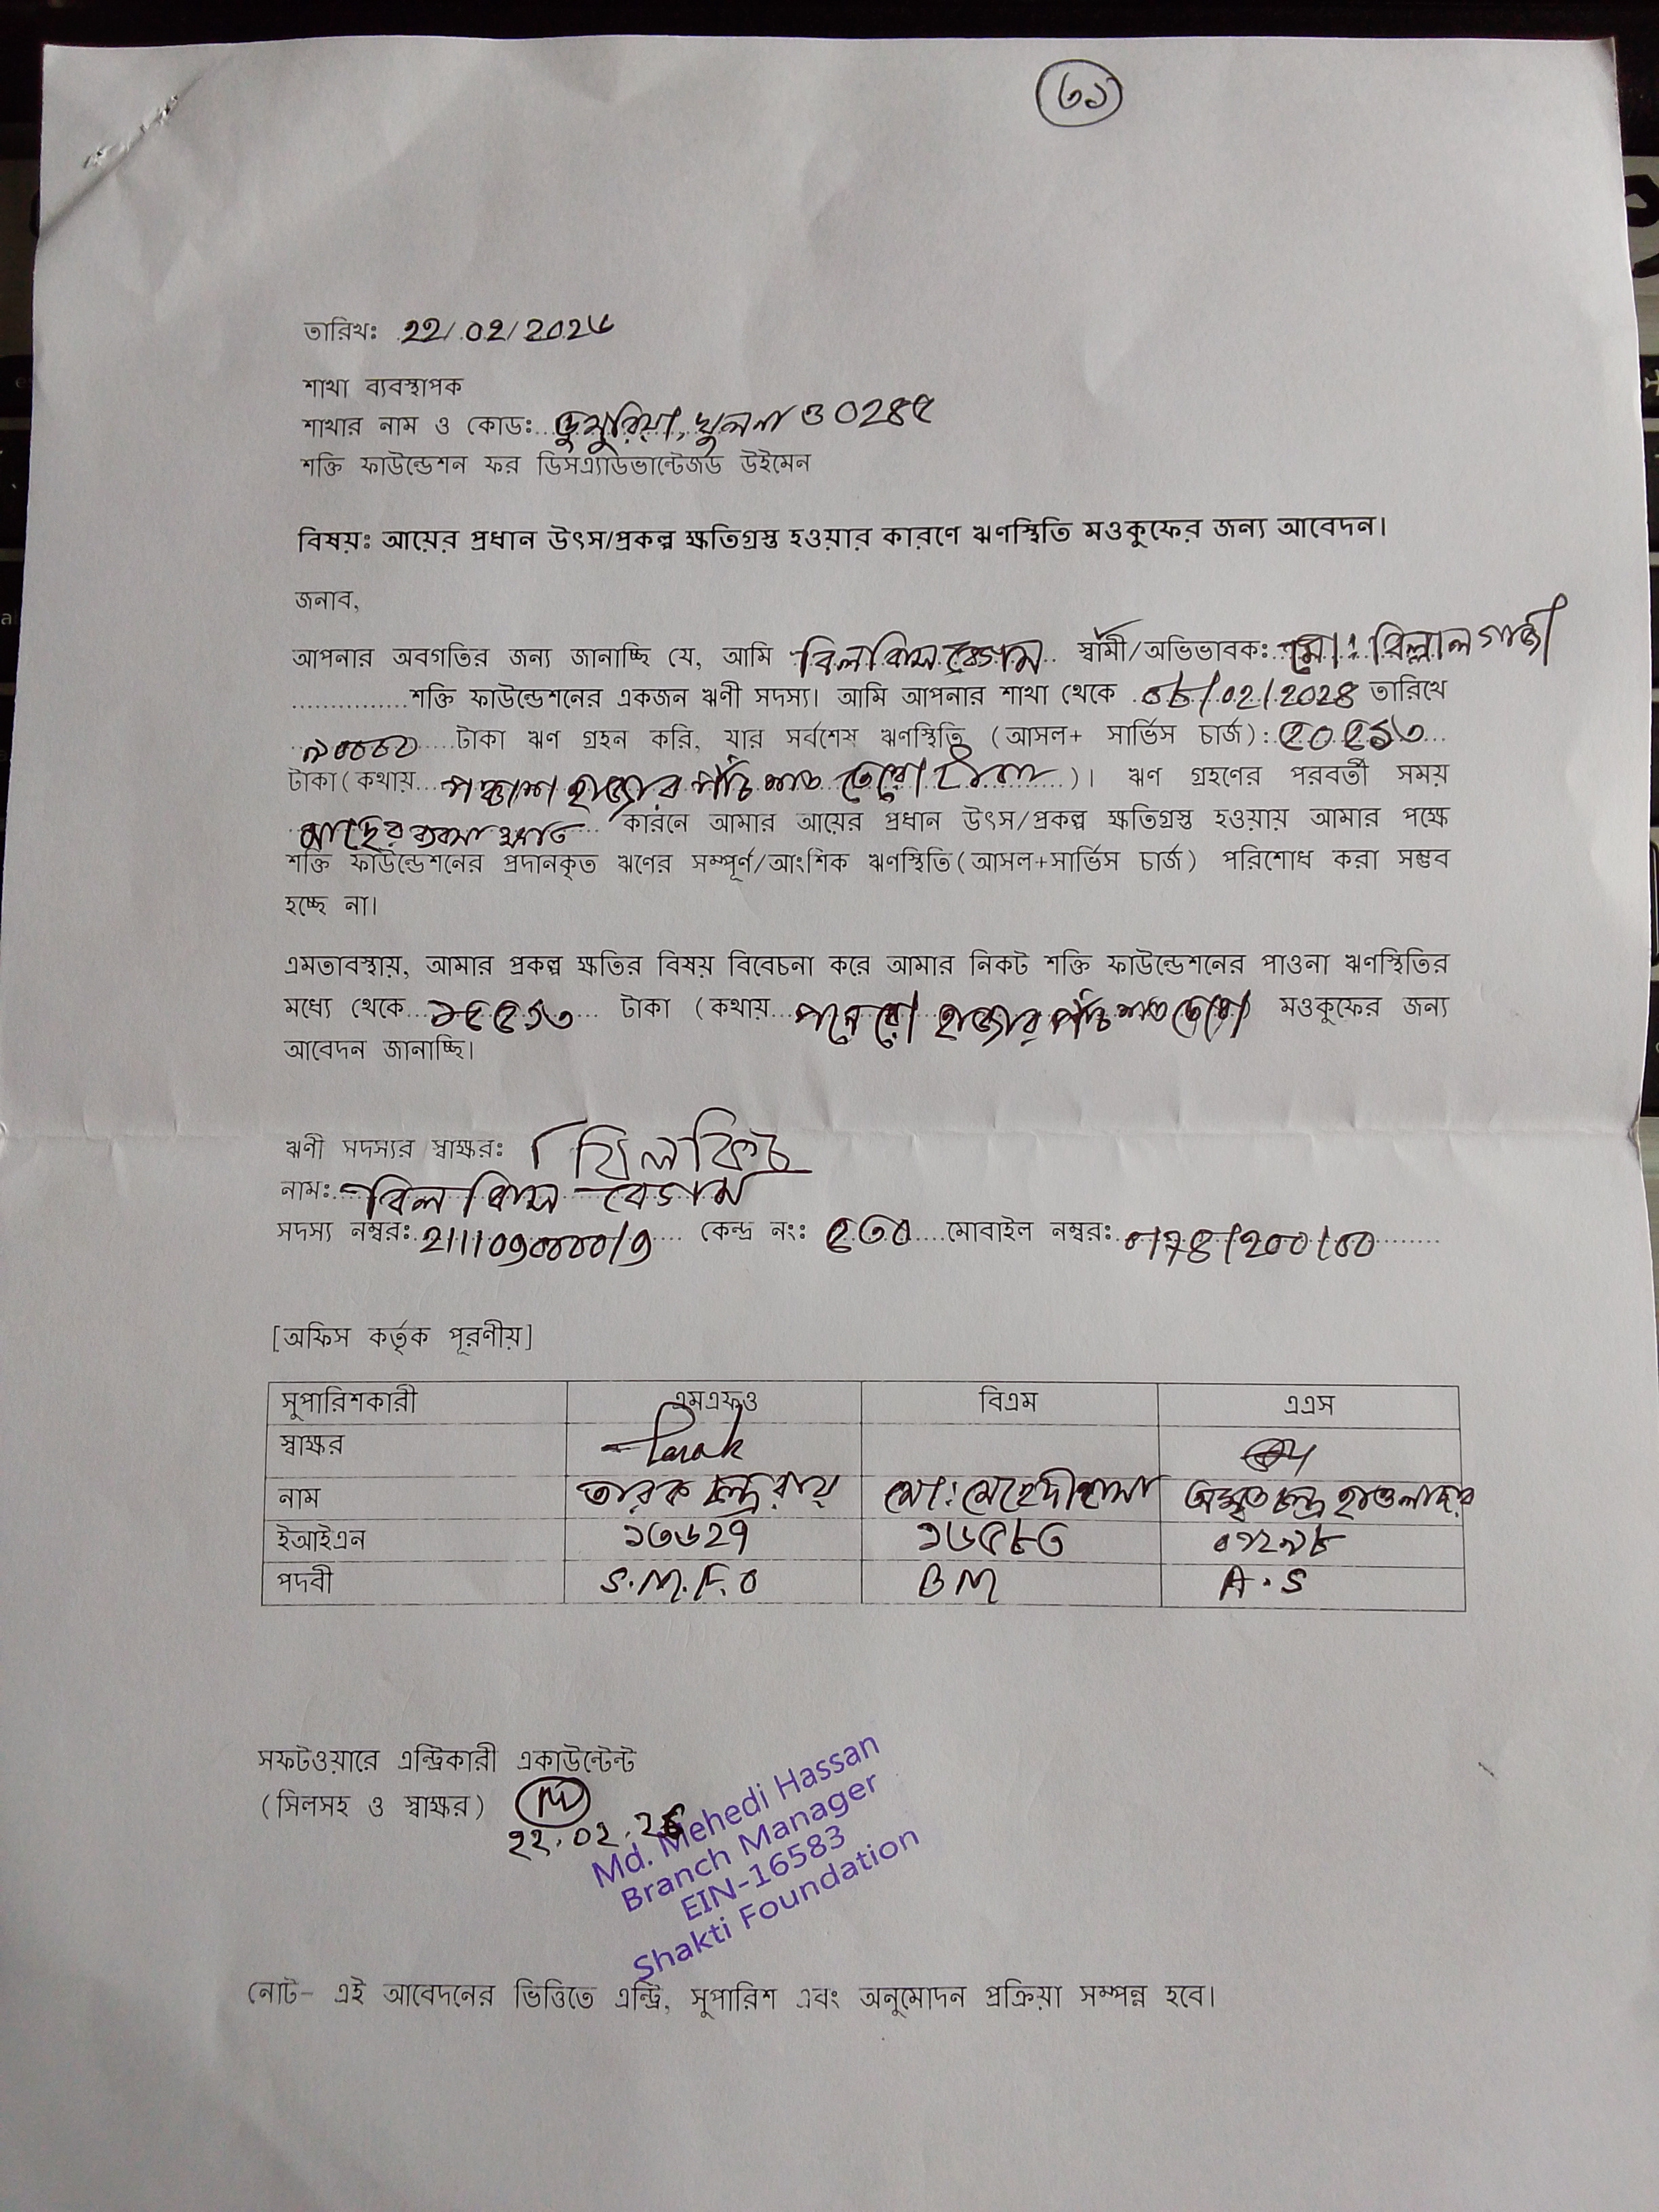 ৬১
তারিখঃ ২২/০২/২০২৬
শাখা ব্যবস্থাপক
শাখার নাম ও কোডঃ ডুমুরিয়া, খুলনা ও ০২৪৫
শক্তি ফাউন্ডেশন ফর ডিসএ্যাডভান্টেজড উইমেন
বিষয়ঃ আয়ের প্রধান উৎস/প্রকল্প ক্ষতিগ্রস্ত হওয়ার কারণে ঋণস্থিতি মওকুফের জন্য আবেদন।
জনাব,
আপনার অবগতির জন্য জানাচ্ছি যে, আমি বিলকিস বেগম স্বামী/অভিভাবক: মো: বিল্লাল গাজী
শক্তি ফাউন্ডেশনের একজন ঋণী সদস্য। আমি আপনার শাখা থেকে ০৮/০২/২০২৪ তারিখে
৯০০০০ টাকা ঋণ গ্রহন করি, যার সর্বশেষ ঋণস্থিতি (আসল+ সার্ভিস চার্জ): ৫০৫১৩
টাকা(কথায় পঞ্চাশ হাজার পাঁচ শত তেরো টাকা)। ঋণ গ্রহণের পরবর্তী সময়
মাছের ব্যবসা ক্ষতি কারনে আমার আয়ের প্রধান উৎস/প্রকল্প ক্ষতিগ্রস্ত হওয়ায় আমার পক্ষে
শক্তি ফাউন্ডেশনের প্রদানকৃত ঋণের সম্পূর্ণ/আংশিক ঋণস্থিতি(আসল+সার্ভিস চার্জ) পরিশোধ করা সম্ভব
হচ্ছে না।
এমতাবস্থায়, আমার প্রকল্প ক্ষতির বিষয় বিবেচনা করে আমার নিকট শক্তি ফাউন্ডেশনের পাওনা ঋণস্থিতির
মধ্যে থেকে ১৫৫১৩ টাকা (কথায় পনেরো হাজার পাঁচ শত তেরো) মওকুফের জন্য
আবেদন জানাচ্ছি।
ঋণী সদস্যর স্বাক্ষরঃ
নামঃ বিলকিস বেগম
সদস্য নম্বরঃ কেন্দ্র নংঃ ৫৩০ মোবাইল নম্বরঃ
[অফিস কর্তৃক পূরণীয়]
সুপারিশকারী এমএফও বিএম এএস
স্বাক্ষর Tarak
নাম তারক চন্দ্র রায় মো: মেহেদী হাসান অমৃত চন্দ্র হাওলাদার
ইআইএন ১৩৬২৭ ১৬৫৮৩ ০৭২৯৮
পদবী S.M.F.O BM A.S
সফটওয়ারে এন্ট্রিকারী একাউন্টেন্ট
(সিলসহ ও স্বাক্ষর)
২২.০২.২৬
Md. Mehedi Hassan
Branch Manager
EIN-16583
Shakti Foundation
নোট- এই আবেদনের ভিত্তিতে এন্ট্রি, সুপারিশ এবং অনুমোদন প্রক্রিয়া সম্পন্ন হবে।